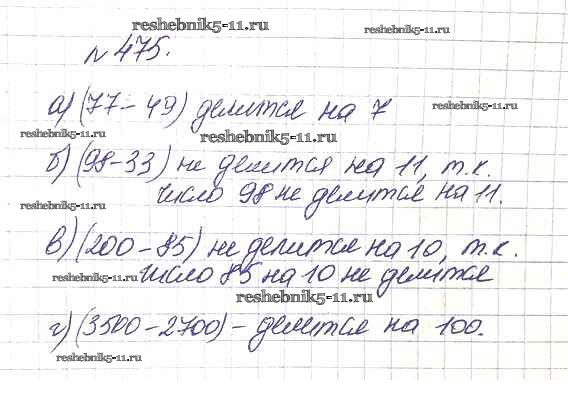 reshebnik5-11.ru
№ 475.
а) (77 - 49) делится на 7
reshebnik5-11.ru
reshebnik5-11.ru
reshebnik5-11.ru
б) (98-33) не делится на 11, т.к.
число 98 не делится на 11.
reshebnik5-11.ru
в) (200 - 85) не делится на 10, т.к.
reshebnik5-11.ru
число 85 на 10 не делится
reshebnik5-11.ru
г) (3500 - 2700) - делится на 100.
reshebnik5-11.ru